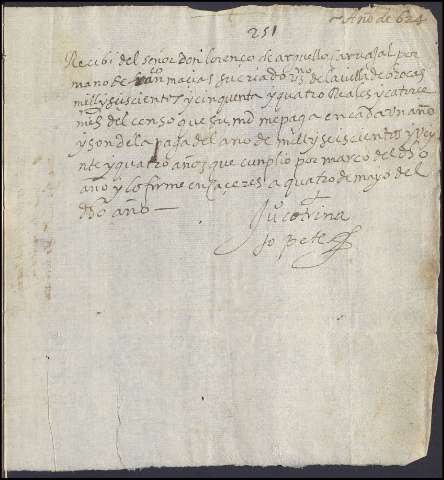 Año de 624
251
Recebi del señor don lorenço de carvajal por
mano de macias su criado vno de la villa de brocas
mill y seiscientos y cinquenta y quatro Reales y catorce
mrs del censo que su md me paga en cada vn año
y son de la paga del año de mill y seiscientos y vey
nte y quatro años que cunplio por março del dho
año y lo firme en caçeres a quatro de mayo del
dho año